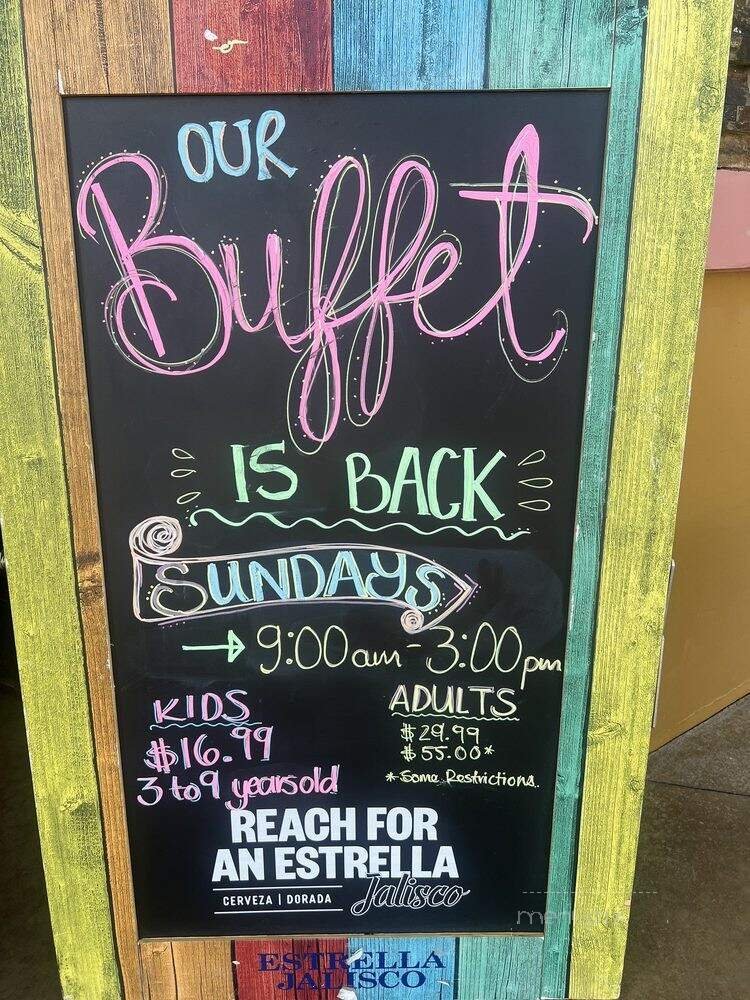 OUR
Buffet
IS BACK
SUNDAYS
9:00am - 3:00pm
KIDS
$16.99
3 to 9 years old
ADULTS
$29.99
$55.00*
*Some Restrictions.
REACH FOR
AN ESTRELLA
CERVEZA | DORADA
Jalisco
ESTRELLA
JALISCO